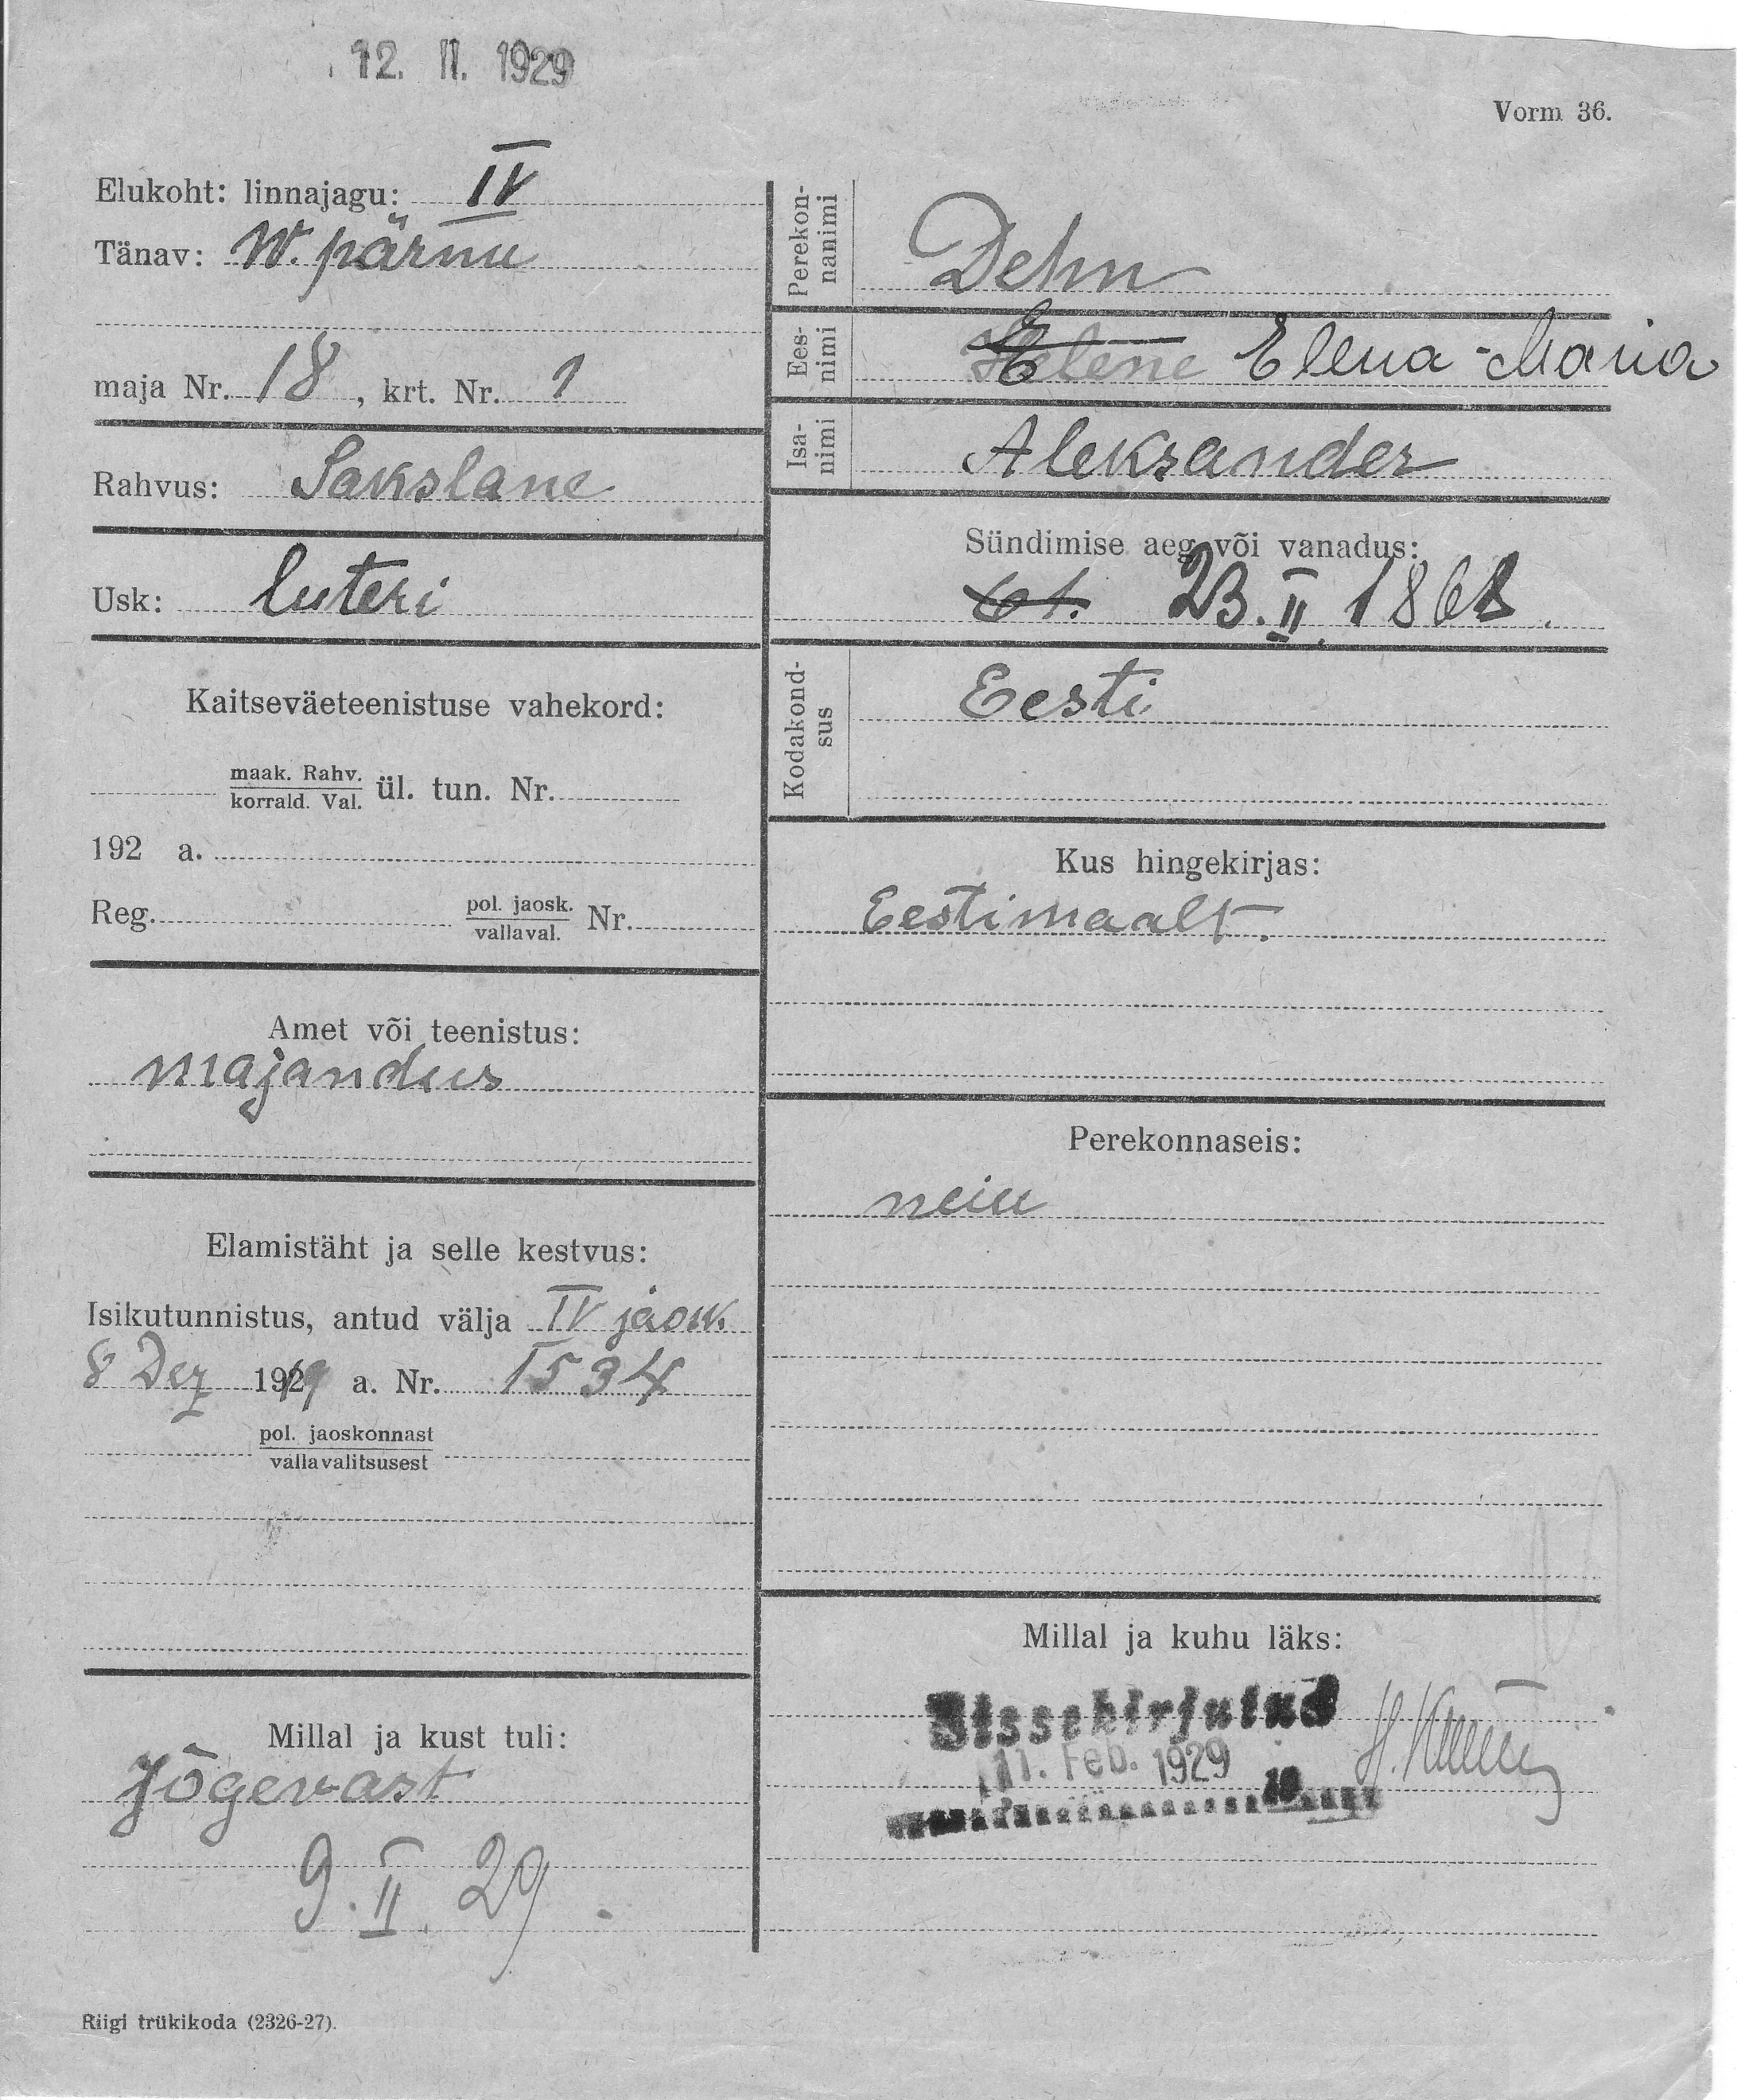 12. II. 1929
Vorm 36.
Elukoht: linnajagu: IV
Tänav: W. pärnu
maja Nr. 18, krt. Nr. 1
Rahvus: Sakslane
Usk: luteri
Kaitseväeteenistuse vahekord:
maak. Rahv.
korrald. Val. ül. tun. Nr.
192 a.
Reg. pol. jaosk.
vallaval. Nr.
Amet või teenistus:
majandus
Elamistäht ja selle kestvus:
Isikutunnistus, antud välja IV jaosk.
8 Dez 1919 a. Nr. 1534
pol. jaoskonnast
vallavalitsusest
Millal ja kust tuli:
Jõgevast
9. II. 29.
Riigi trükikoda (2326-27).
Perekon-
nanimi
Dehn
Ees-
nimi
Helene Elena-Maria
Isa-
nimi
Aleksander
Sündimise aeg või vanadus:
61. 23. II 1868.
Kodakond-
sus
Eesti
Kus hingekirjas:
Eestimaalt.
Perekonnaseis:
neiu
Millal ja kuhu läks:
Sissekirjutud
11. Feb. 1929